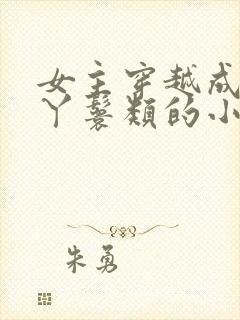 女主穿越成
丫鬟类的小
朱勇